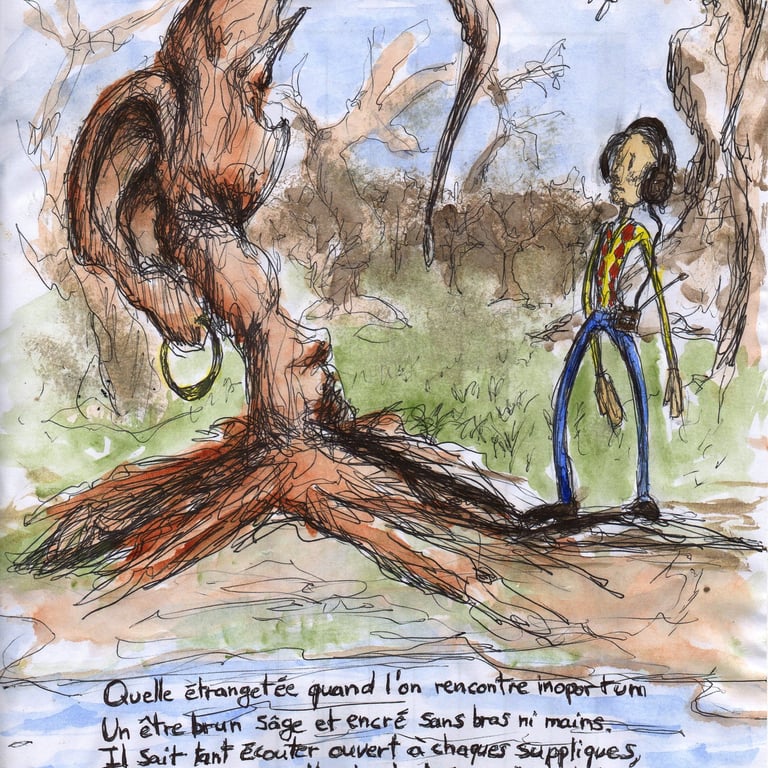 Quelle étrangetée quand l'on rencontre inoportum
Un être brun sâge et encré sans bras ni mains.
Il sait tant écouter ouvert à chaques suppliques,